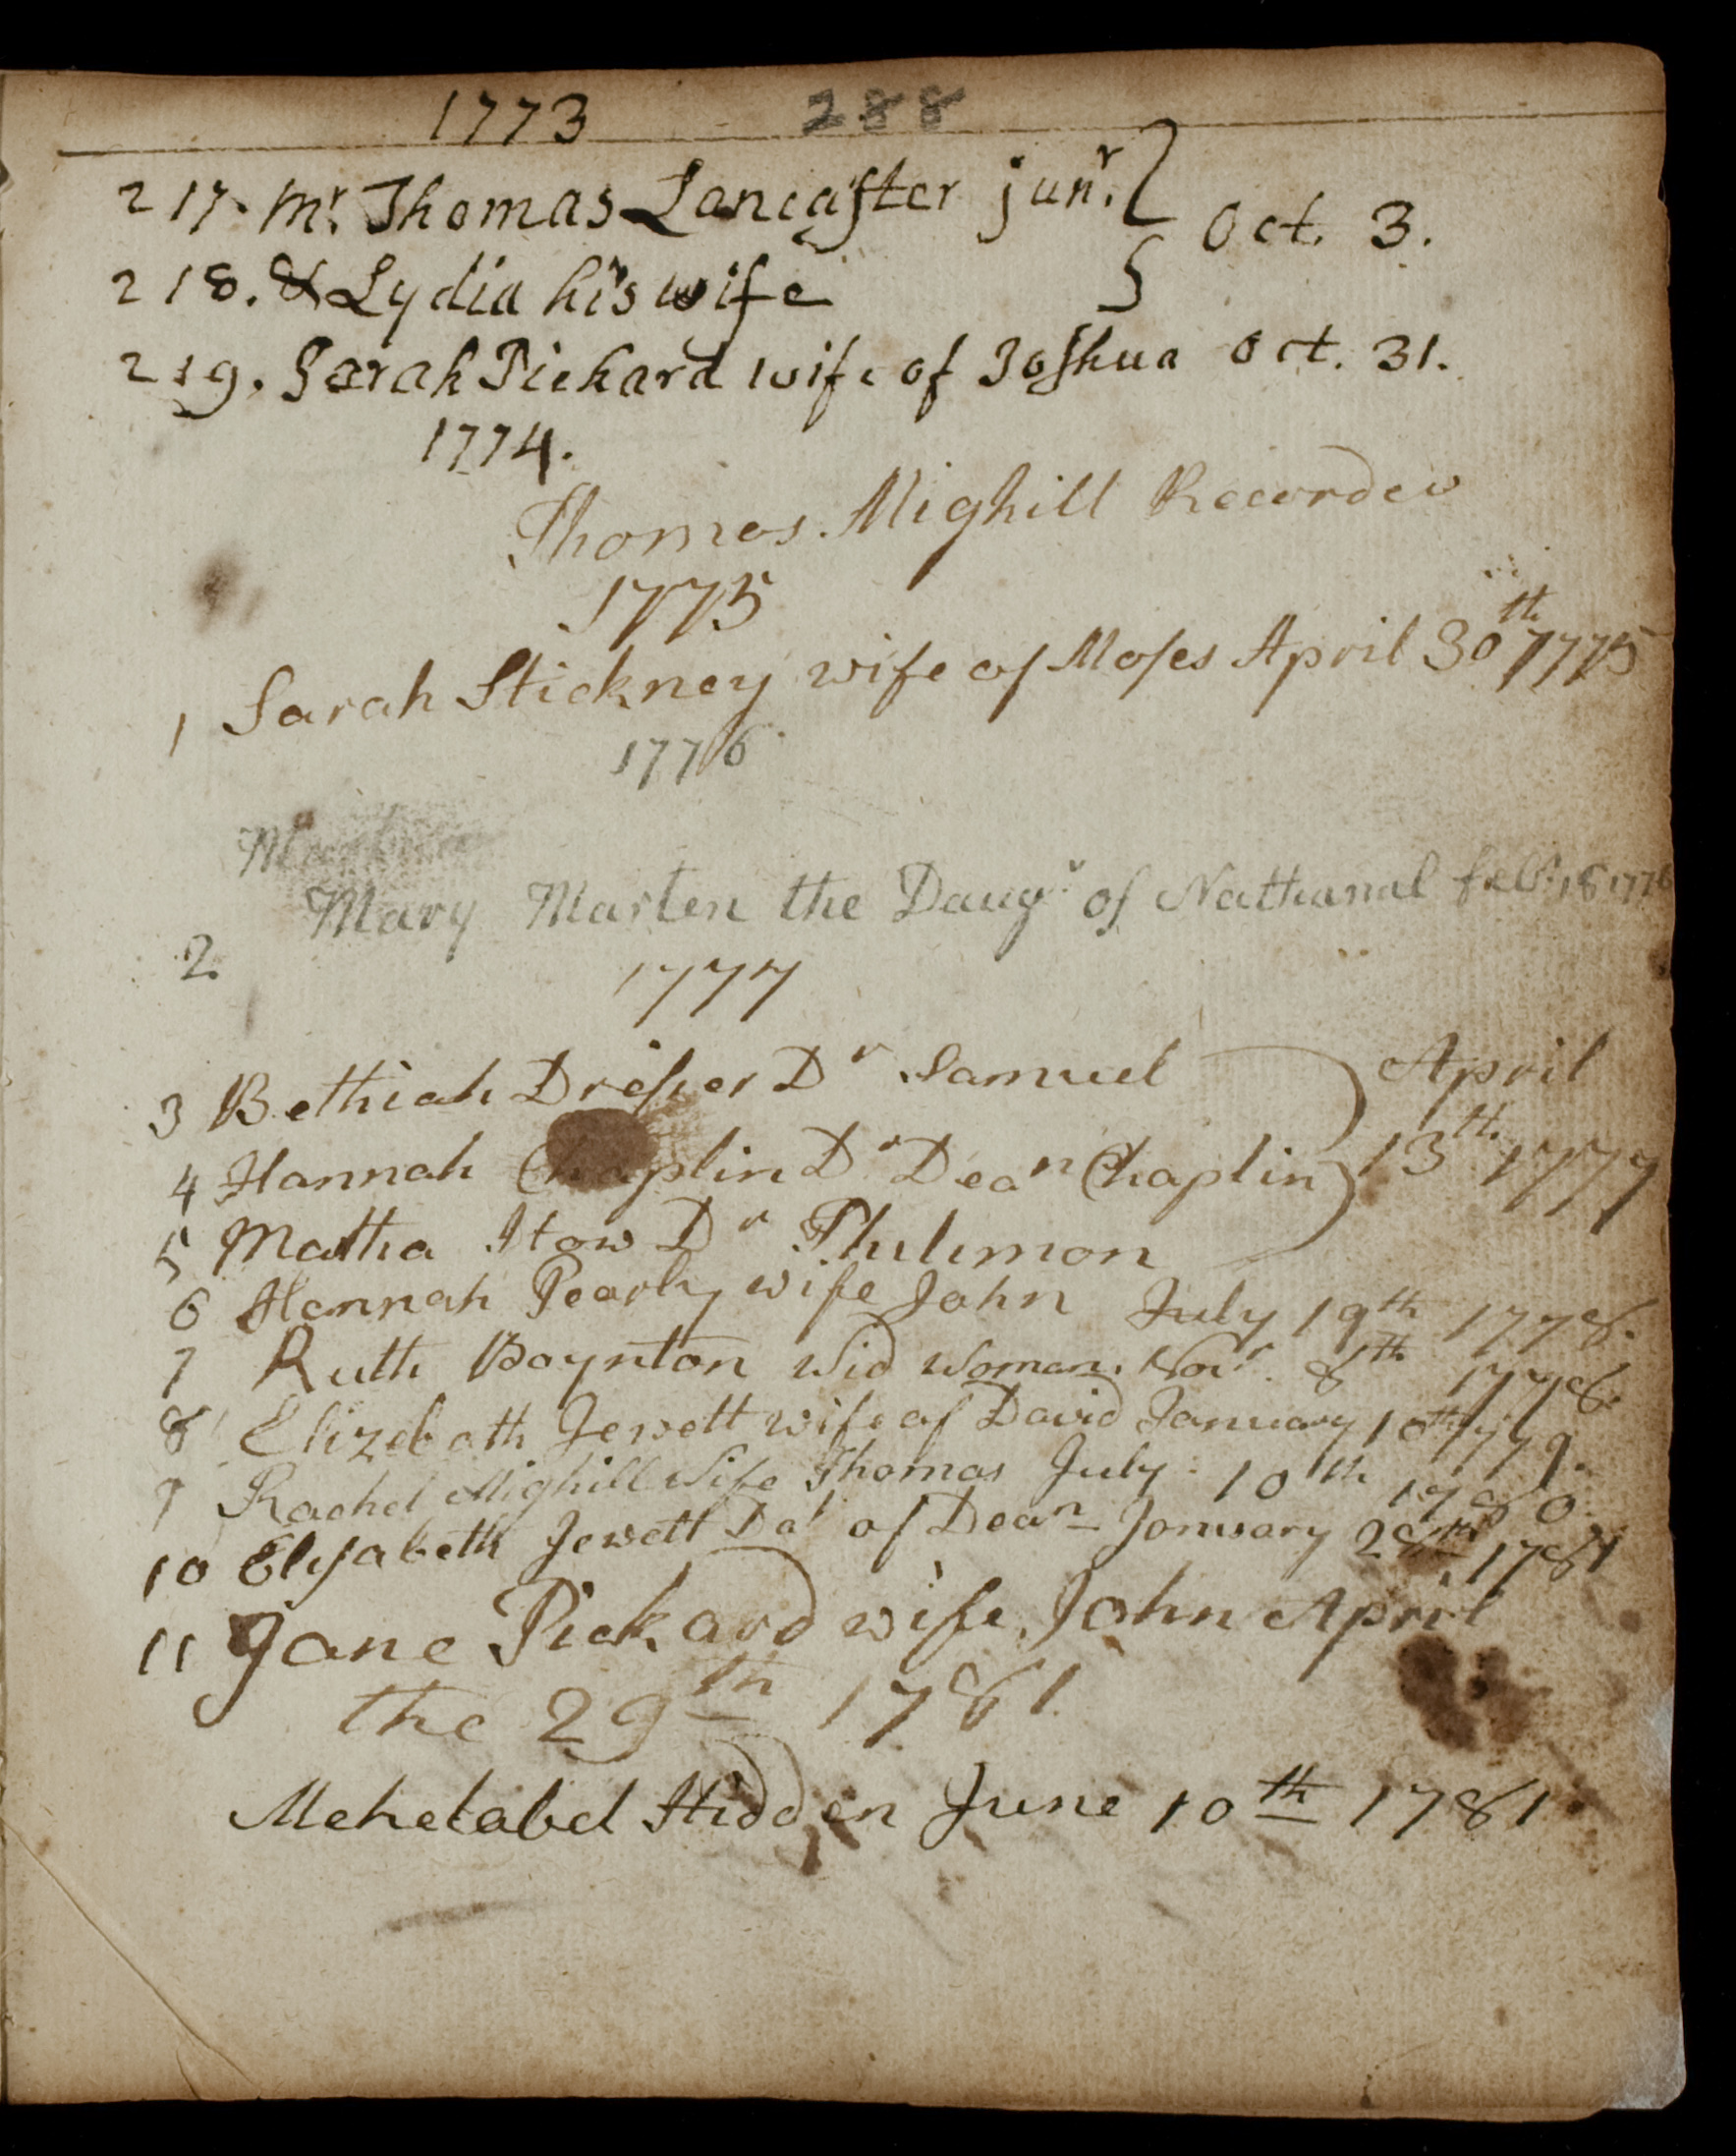 1773 288
217. Mr. Thomas Lancaster junr. } Oct. 3.
218. & Lydia his wife
219. Sarah Pickard wife of Joshua Oct. 31.
1774.
Thomas. Mighill Recorder
1775
1 Sarah Stickney wife of Moses April 30th 1775
1776
Mary Marten the Daugr of Nathanal febr. 18 1776
2
1777
3 Bethiah Dresser Dr Samuel } April
4 Hannah Chaplin Dr Dean Chaplin 13th 1777
5 Martha Stow Dr Philimon
6 Hannah Pearly wife John July 19th 1778.
7 Ruth Boynton Wid Woman. Novr. 8th 1778.
8 Elizebath Jewett wife of David January 10th 1779.
9 Rachel Mighill Wife Thomas July 10th 1780.
10 Elysabeth Jewett Dar of Dean January 28th 1781
11 Jane Pickard wife John April
the 29th 1781
Mehetabel Hidden June 10th 1781.